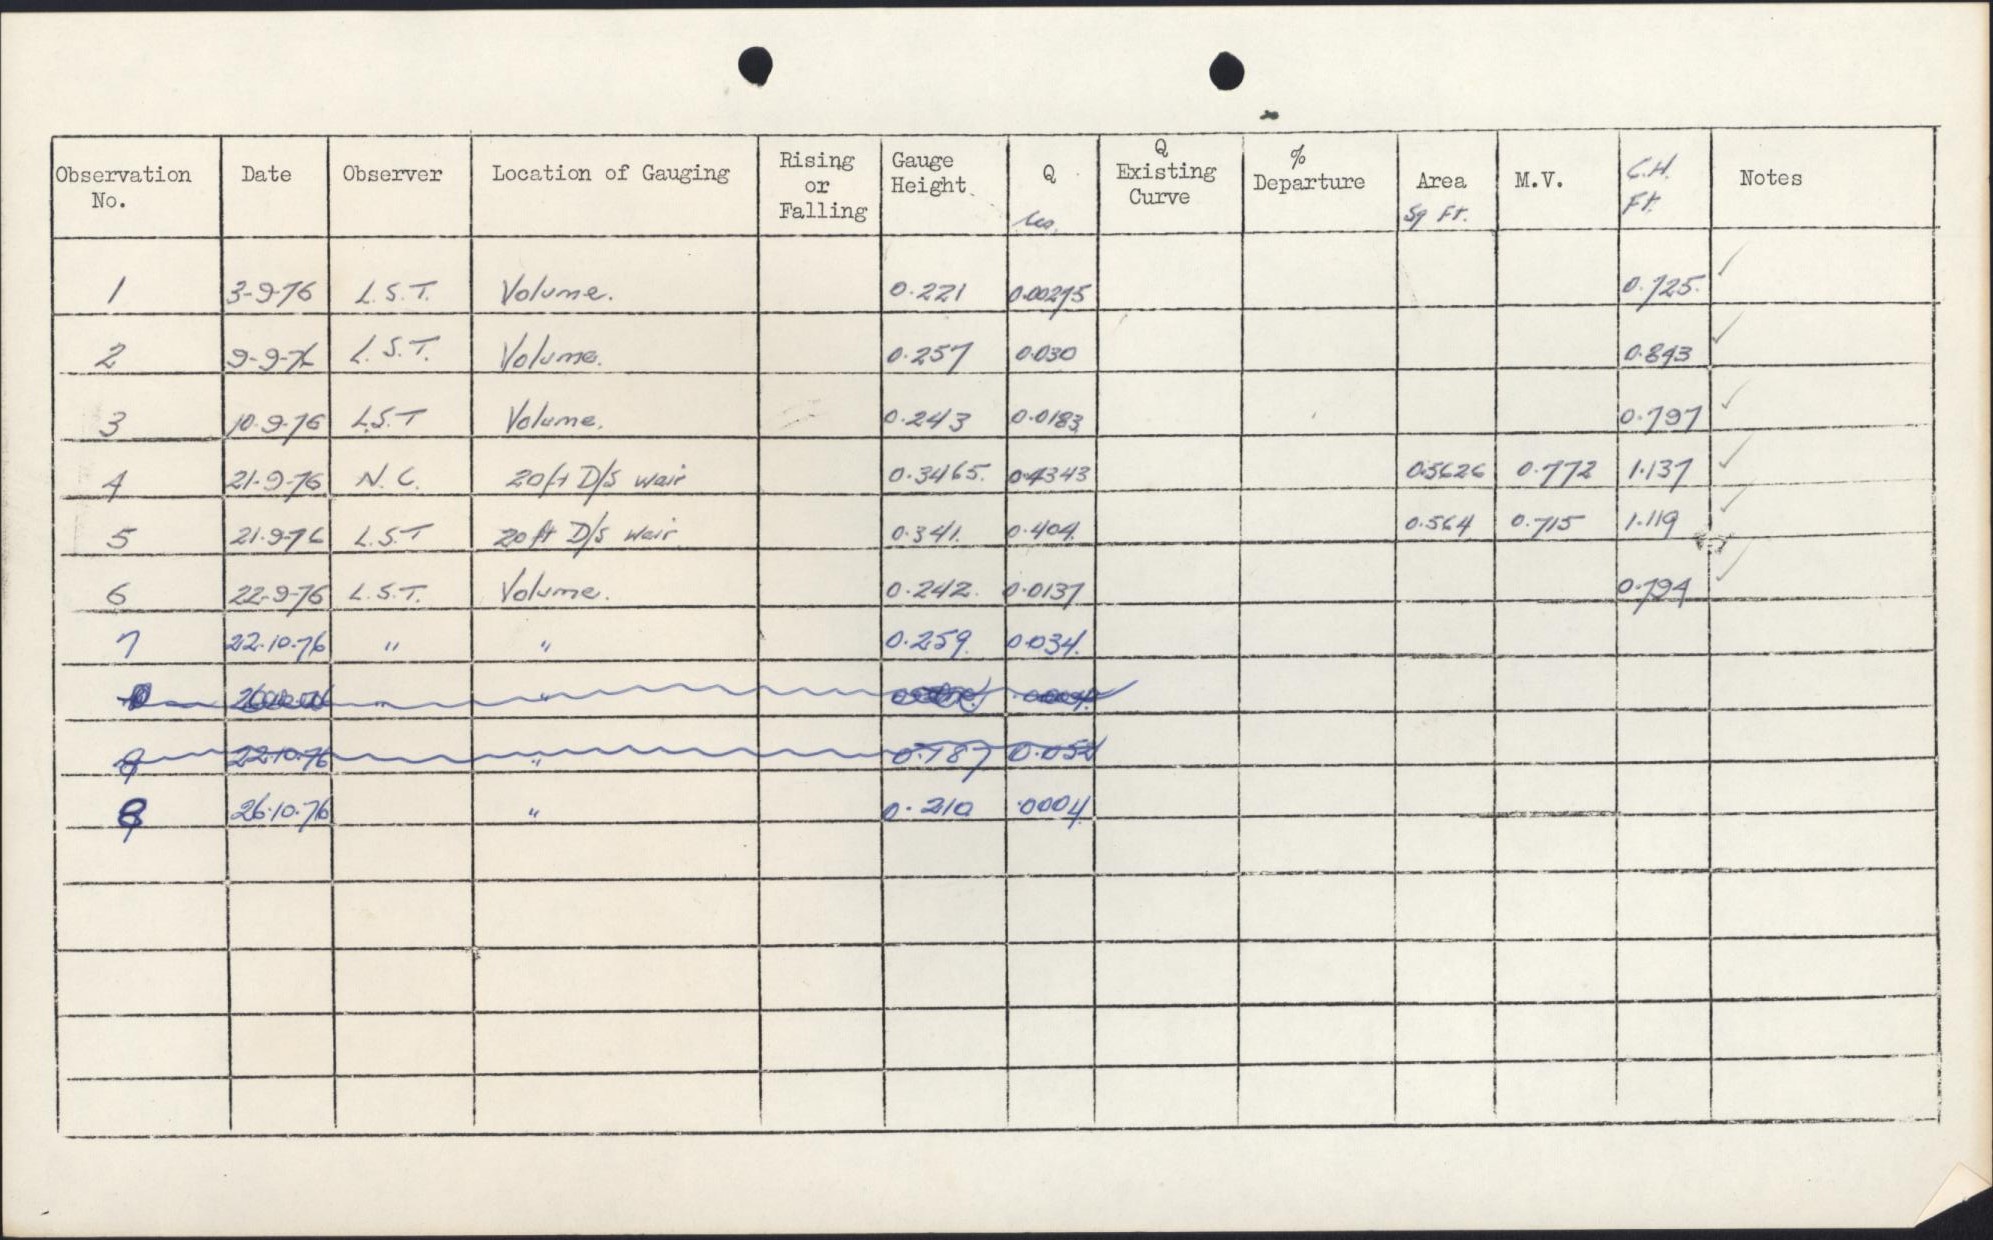 Observation No. Date Observer Location of Gauging Rising or Falling Gauge Height Q Q Existing Curve % Departure Area Sq Ft. M.V. G.H. Ft. Notes
1 3-9-76 L.S.T. Volume. 0.221 0.00275 0.725 ✓
2 9-9-76 L.S.T. Volume. 0.257 0.030 0.843 ✓
3 10-9-76 L.S.T Volume. 0.243 0.0183 0.797 ✓
4 21-9-76 N.C. 20ft D/S weir 0.3465. 0.4343 0.5626 0.772 1.137 ✓
5 21-9-76 L.S.T 20ft D/S weir 0.341. 0.404. 0.564 0.715 1.119 ✓
6 22-9-76 L.S.T. Volume. 0.242. 0.0137 0.794 ✓
7 22.10.76 " " 0.259. 0.034.
" "
9 22.10.76 " 0.787 0.052
8 26.10.76 " 0.210 .0004